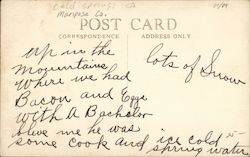 Cold Springs CA
Mariposa Co.
POST CARD
CORRESPONDENCE
ADDRESS ONLY
up in the
Mountains
Where we had
Bacon and Eggs
With A Bachelor
blive me he was
some Cook and ice cold
spring water
lots of Snow